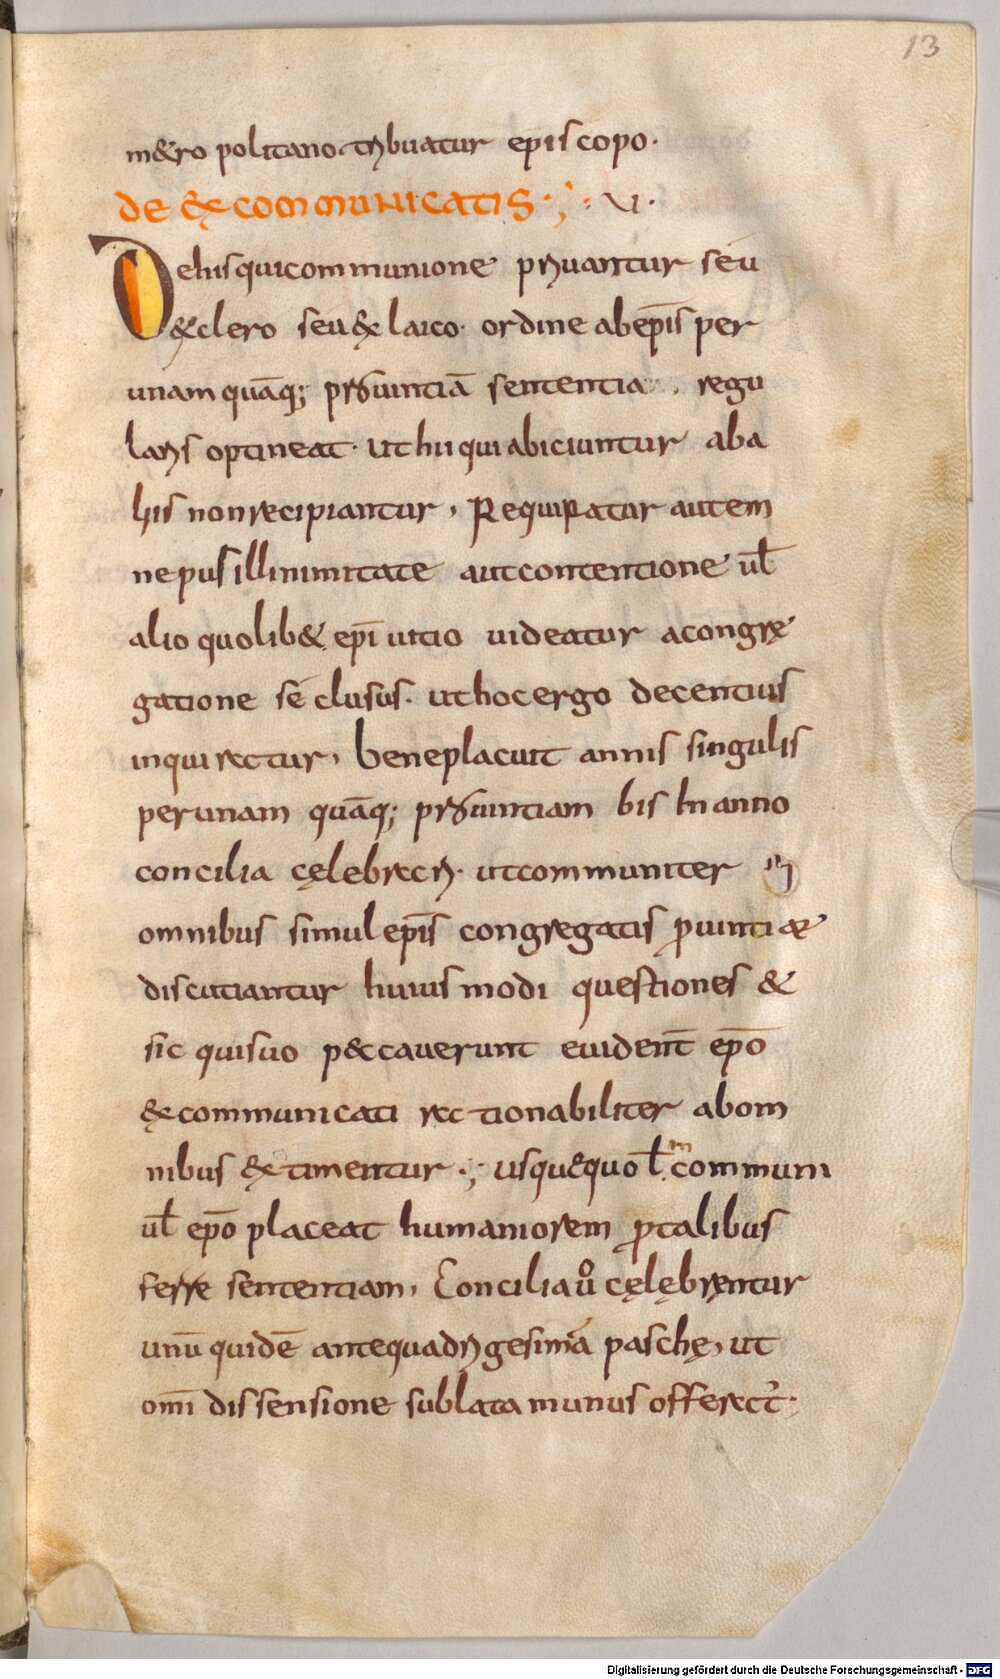 13
m&ropolitano tribuatur episcopo.
de excommunicatis·; = VI·
De his qui communione priuantur seu
ex clero seu ex laico· ordine ab ep̄is per
unam quāq; prouintiā sententia, regu
laris optineat· ut hii qui abiciuntur ab a
liis non recipiantur, Requiratur autem
ne pusillinimitate aut contentione uł
alio quolib& ep̄i uitio uideatur a congrę
gatione seclusus· ut hoc ergo decentius
inquiratur, bene placuit annis singulis
per unam quāq; prouintiam bis In anno
concilia cęlebrari· ut communiter
omnibus simul ep̄is congregatis ꝓuintiae
discutiantur huius modi questiones &
sic qui suo peccauerunt euident̄ ep̄o
excommunicati rationabiliter ab om
nibus extimentur·; usquequo uł
uł ep̄o placeat humaniorem ꝓ talibus
ferre sententiam, Concilia uͦ cęlębręntur
unū quidē ante quadrigesimā paschę, ut
om̄i dissensione sublata munus offerat᷑·
Digitalisierung gefördert durch die Deutsche Forschungsgemeinschaft - DFG